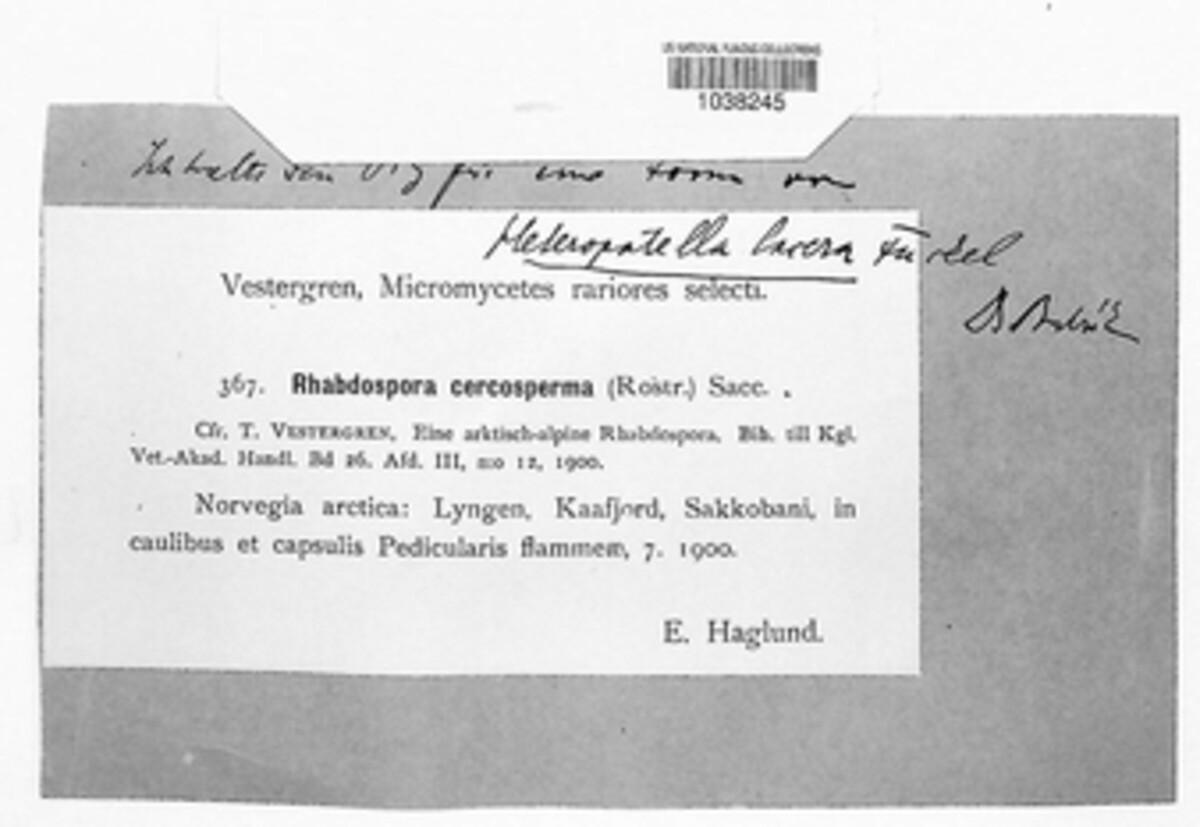 US NATIONAL FUNGUS COLLECTIONS
1038245
Ich halte den für eine Form von
Heteropatella lacera Fuckel
Vestergren, Micromycetes rariores selecti.
367. Rhabdospora cercosperma (Rostr.) Sacc.
Cfr. T. VESTERGREN, Eine arktisch-alpine Rhabdospora, Bih. till Kgl.
Vet.-Akad. Handl. Bd 26. Afd. III, n:o 12, 1900.
Norvegia arctica: Lyngen, Kaafjord, Sakkobani, in
caulibus et capsulis Pedicularis flammeæ, 7. 1900.
E. Haglund.